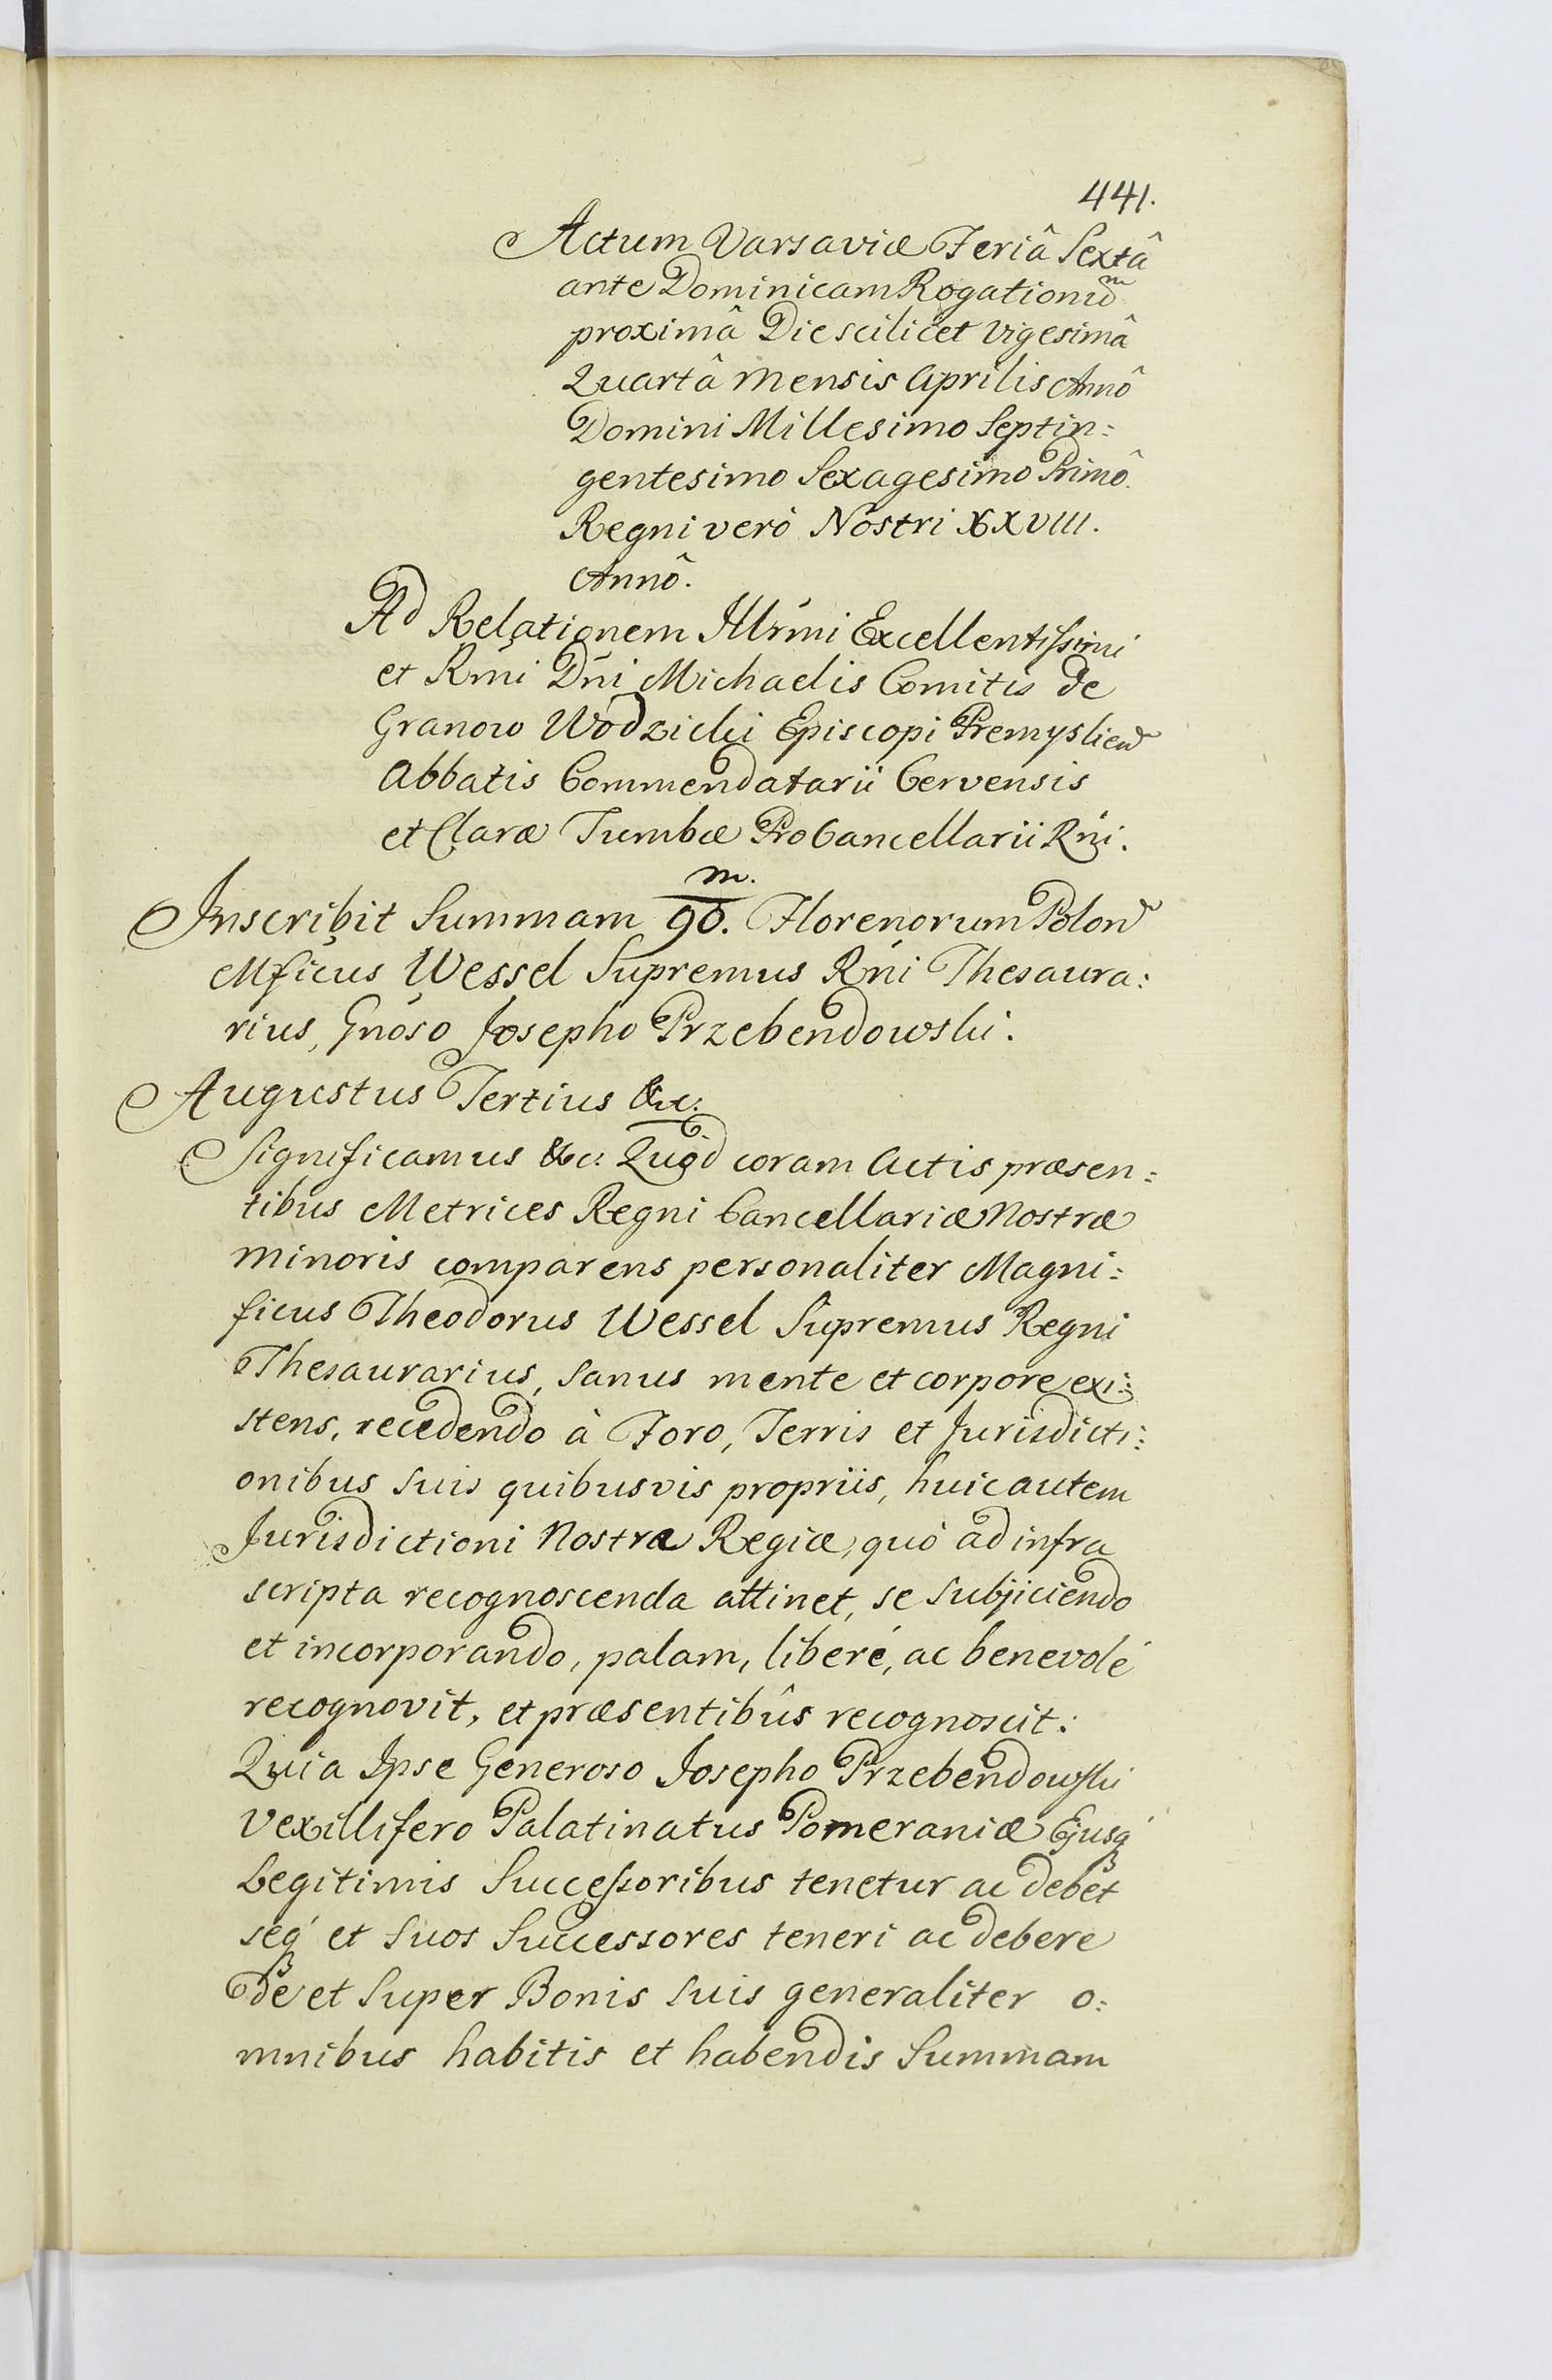 441.
Actum Varsaviæ Feriâ Sextâ
ante Dominicam Rogationũm
proximâ Die scilicet Vigesimâ
Quartâ Mensis Aprilis Annô
Domini Millesimo Septin=
gentesimo Sexagesimo Primô
Regni verò Nostri XXVIII.
Annô.
Ad Relationem Illrmi Excellentissimi
et Rmi Dni Michaelis Comitis de
Granow Wodzicki Episcopi Premyslien
Abbatis Commendatarii Cervensis
et Claræ Tumbæ ProCancellarii Rni.
m.
Inscribit Summam 90. Florenorum Polon
Mficus Wessel Supremus Rni Thesaura:
rius, Gnoso Josepho Przebendowski.
Augustus Tertius &c:
Significamus &c: Quod coram Actis præsen=
tibus Metrices Regni Cancellariæ Nostræ
Minoris comparens personaliter Magni=
ficus Theodorus Wessel Supremus Regni
Thesaurarius, sanus mente et corpore exi=
stens, recedendo à Foro, Terris et Jurisdicti=
onibus suis quibusvis propriis, huic autem
Jurisdictioni Nostræ Regiæ, quò ad infra
scripta recognoscenda attinet, se subjiciendo
et incorporando, palam, liberé, ac benevolé
recognovit, et præsentibûs recognoscit:
Quia Ipse Generoso Josepho Przebendowski
Vexillifero Palatinatus Pomeraniæ Ejusq́
Legitimis Successoribus tenetur ac debet
seq́ et suos Successores teneri ac debere
de et super Bonis suis generaliter o=
mnibus habitis et habendis Summam